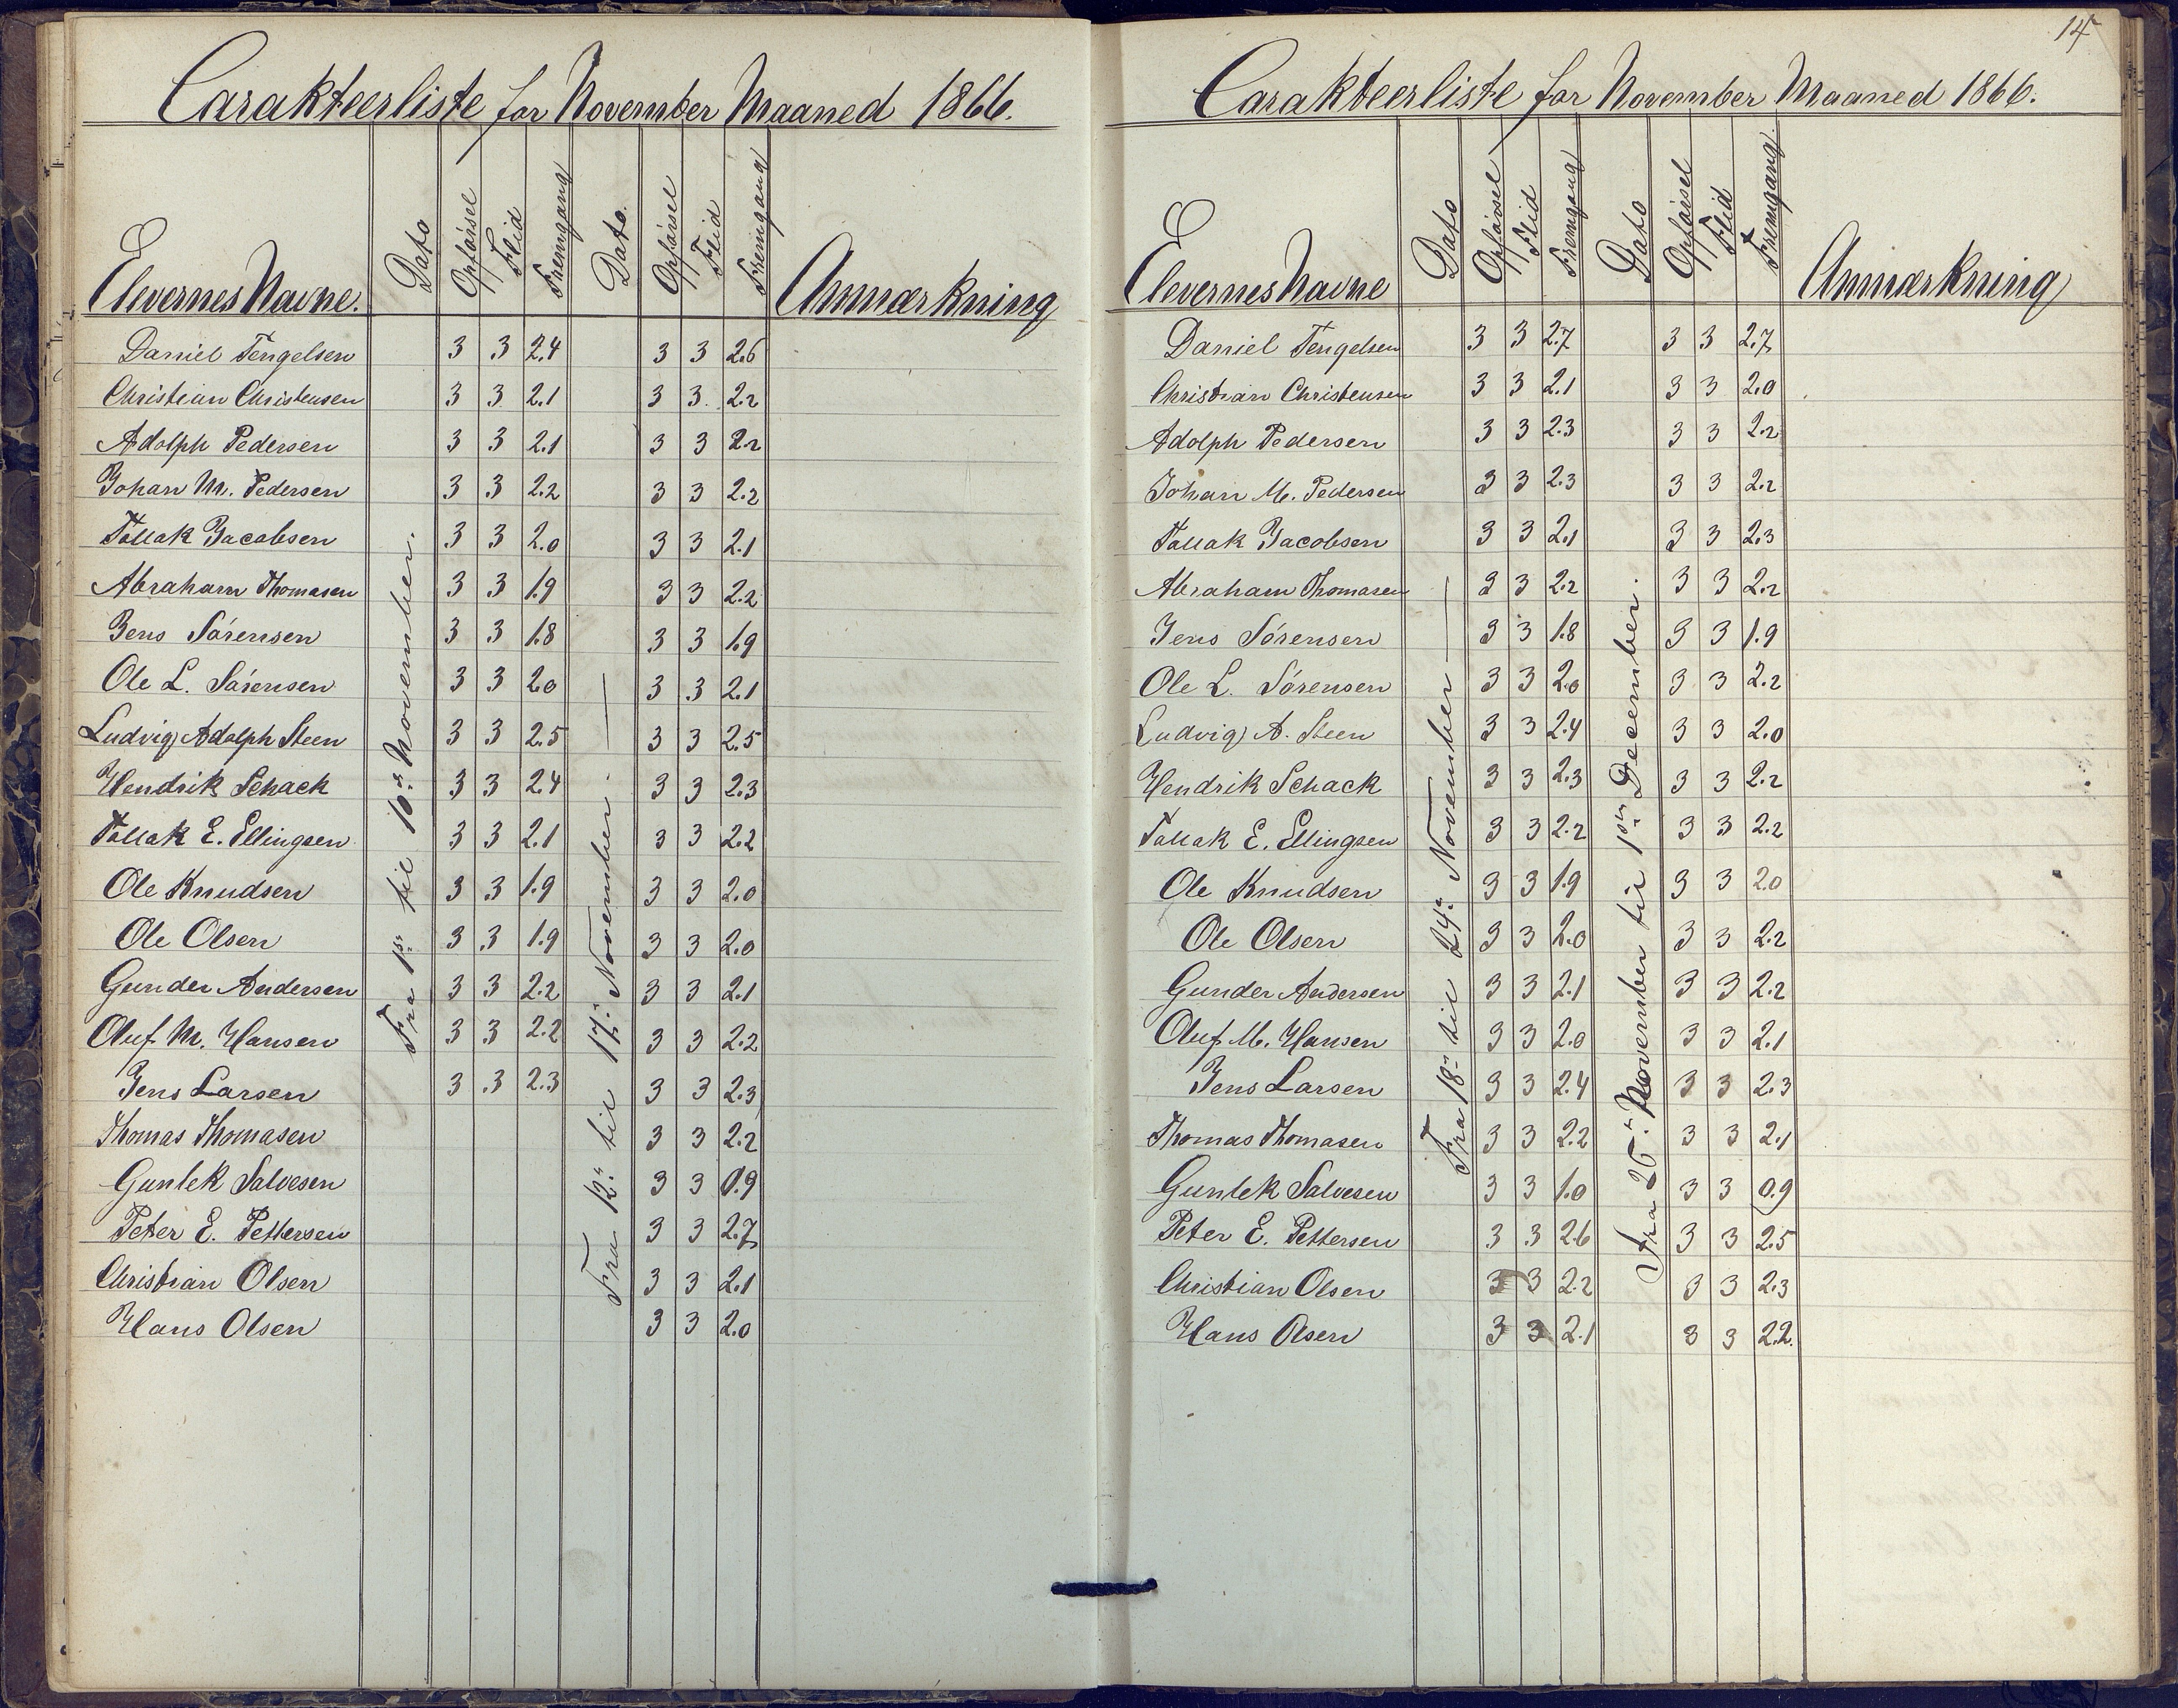 Carakteerliste for November Maaned 1866.
Elevernes Navne. Dato Opførsel Flid Fremgang Dato. Opførsel Flid Fremgang Anmærkning
Fra 1ste til 10de November.
Fra 12te til 17de November.
Daniel Tengelsen 3 3 2.4 3 3 2.6
Christian Christensen 3 3 2.1 3 3 2.2
Adolph Pedersen 3 3 2.1 3 3 2.2
Johan M. Pedersen 3 3 2.2 3 3 2.2
Tallak Jacobsen 3 3 2.0 3 3 2.1
Abraham Thomasen 3 3 1.9 3 3 2.2
Jens Sørensen 3 3 1.8 3 3 1.9
Ole L. Sørensen 3 3 2.0 3 3 2.1
Ludvig Adolph Steen 3 3 2.5 3 3 2.5
Hendrik Schack 3 3 2.4 3 3 2.3
Tallak E. Ellingsen 3 3 2.1 3 3 2.2
Ole Knudsen 3 3 1.9 3 3 2.0
Ole Olsen 3 3 1.9 3 3 2.0
Gunder Andersen 3 3 2.2 3 3 2.1
Oluf M. Hansen 3 3 2.2 3 3 2.2
Jens Larsen 3 3 2.3 3 3 2.3
Thomas Thomasen 3 3 2.2
Gunlek Salvesen 3 3 0.9
Peter E. Pettersen 3 3 2.7
Christian Olsen 3 3 2.1
Hans Olsen 3 3 2.0
14
Carakteerliste for November Maaned 1866.
Elevernes Navne Dato Opførsel Flid Fremgang Dato Opførsel Flid Fremgang. Anmærkning
Fra 18de til 24de November
Fra 25de November til 1ste December.
Daniel Tengelsen 3 3 2.7 3 3 2.7
Christian Christensen 3 3 2.1 3 3 2.0
Adolph Pedersen 3 3 2.3 3 3 2.2
Johan M. Pedersen 3 3 2.3 3 3 2.2
Tallak Jacobsen 3 3 2.1 3 3 2.3
Abraham Thomasen 3 3 2.2 3 3 2.2
Jens Sørensen 3 3 1.8 3 3 1.9
Ole L. Sørensen 3 3 2.0 3 3 2.2
Ludvig A. Steen 3 3 2.4 3 3 2.0
Hendrik Schack 3 3 2.3 3 3 2.2
Tallak E. Ellingsen 3 3 2.2 3 3 2.2
Ole Knudsen 3 3 1.9 3 3 2.0
Ole Olsen 3 3 2.0 3 3 2.2
Gunder Andersen 3 3 2.1 3 3 2.2
Oluf M. Hansen 3 3 2.0 3 3 2.1
Jens Larsen 3 3 2.4 3 3 2.3
Thomas Thomasen 3 3 2.2 3 3 2.1
Gunlek Salvesen 3 3 1.0 3 3 0.9
Peter E. Pettersen 3 3 2.6 3 3 2.5
Christian Olsen 3 3 2.2 3 3 2.3
Hans Olsen 3 3 2.1 3 3 2.2.